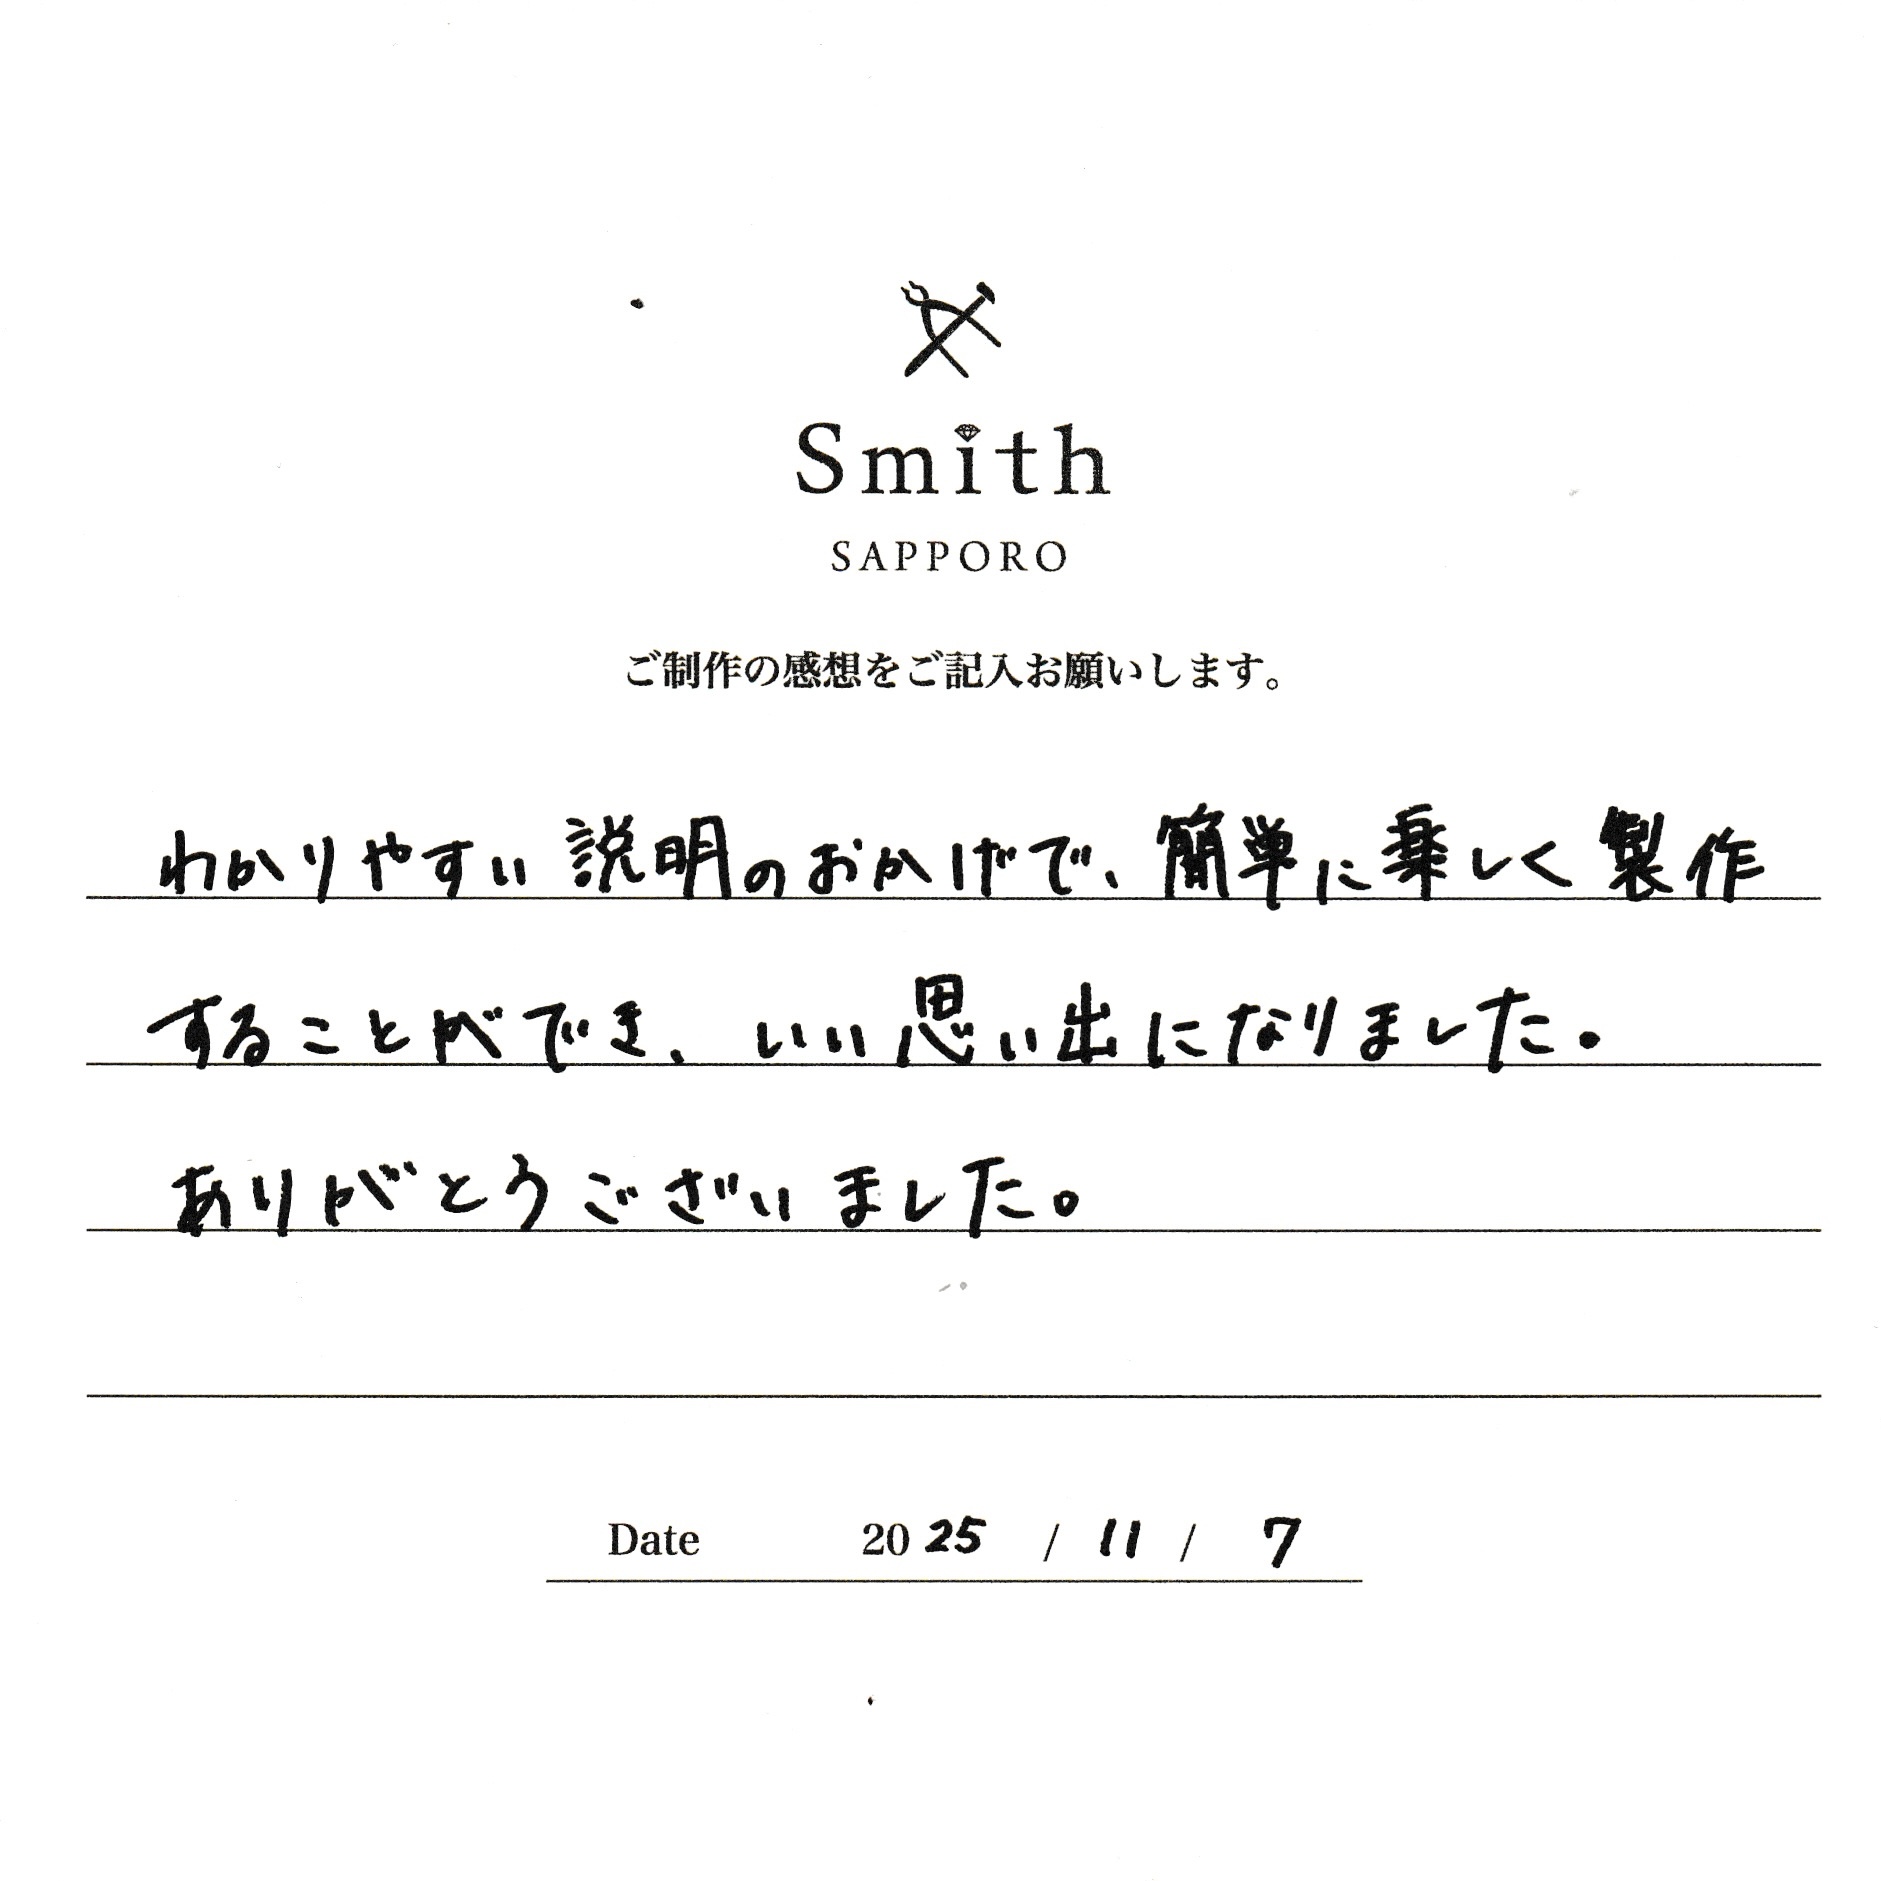 Smith
SAPPORO
ご制作の感想をご記入お願いします。
わかりやすい説明のおかげで、簡単に楽しく製作
することができ、いい思い出になりました。
ありがとうございました。
Date 2025 / 11 / 7